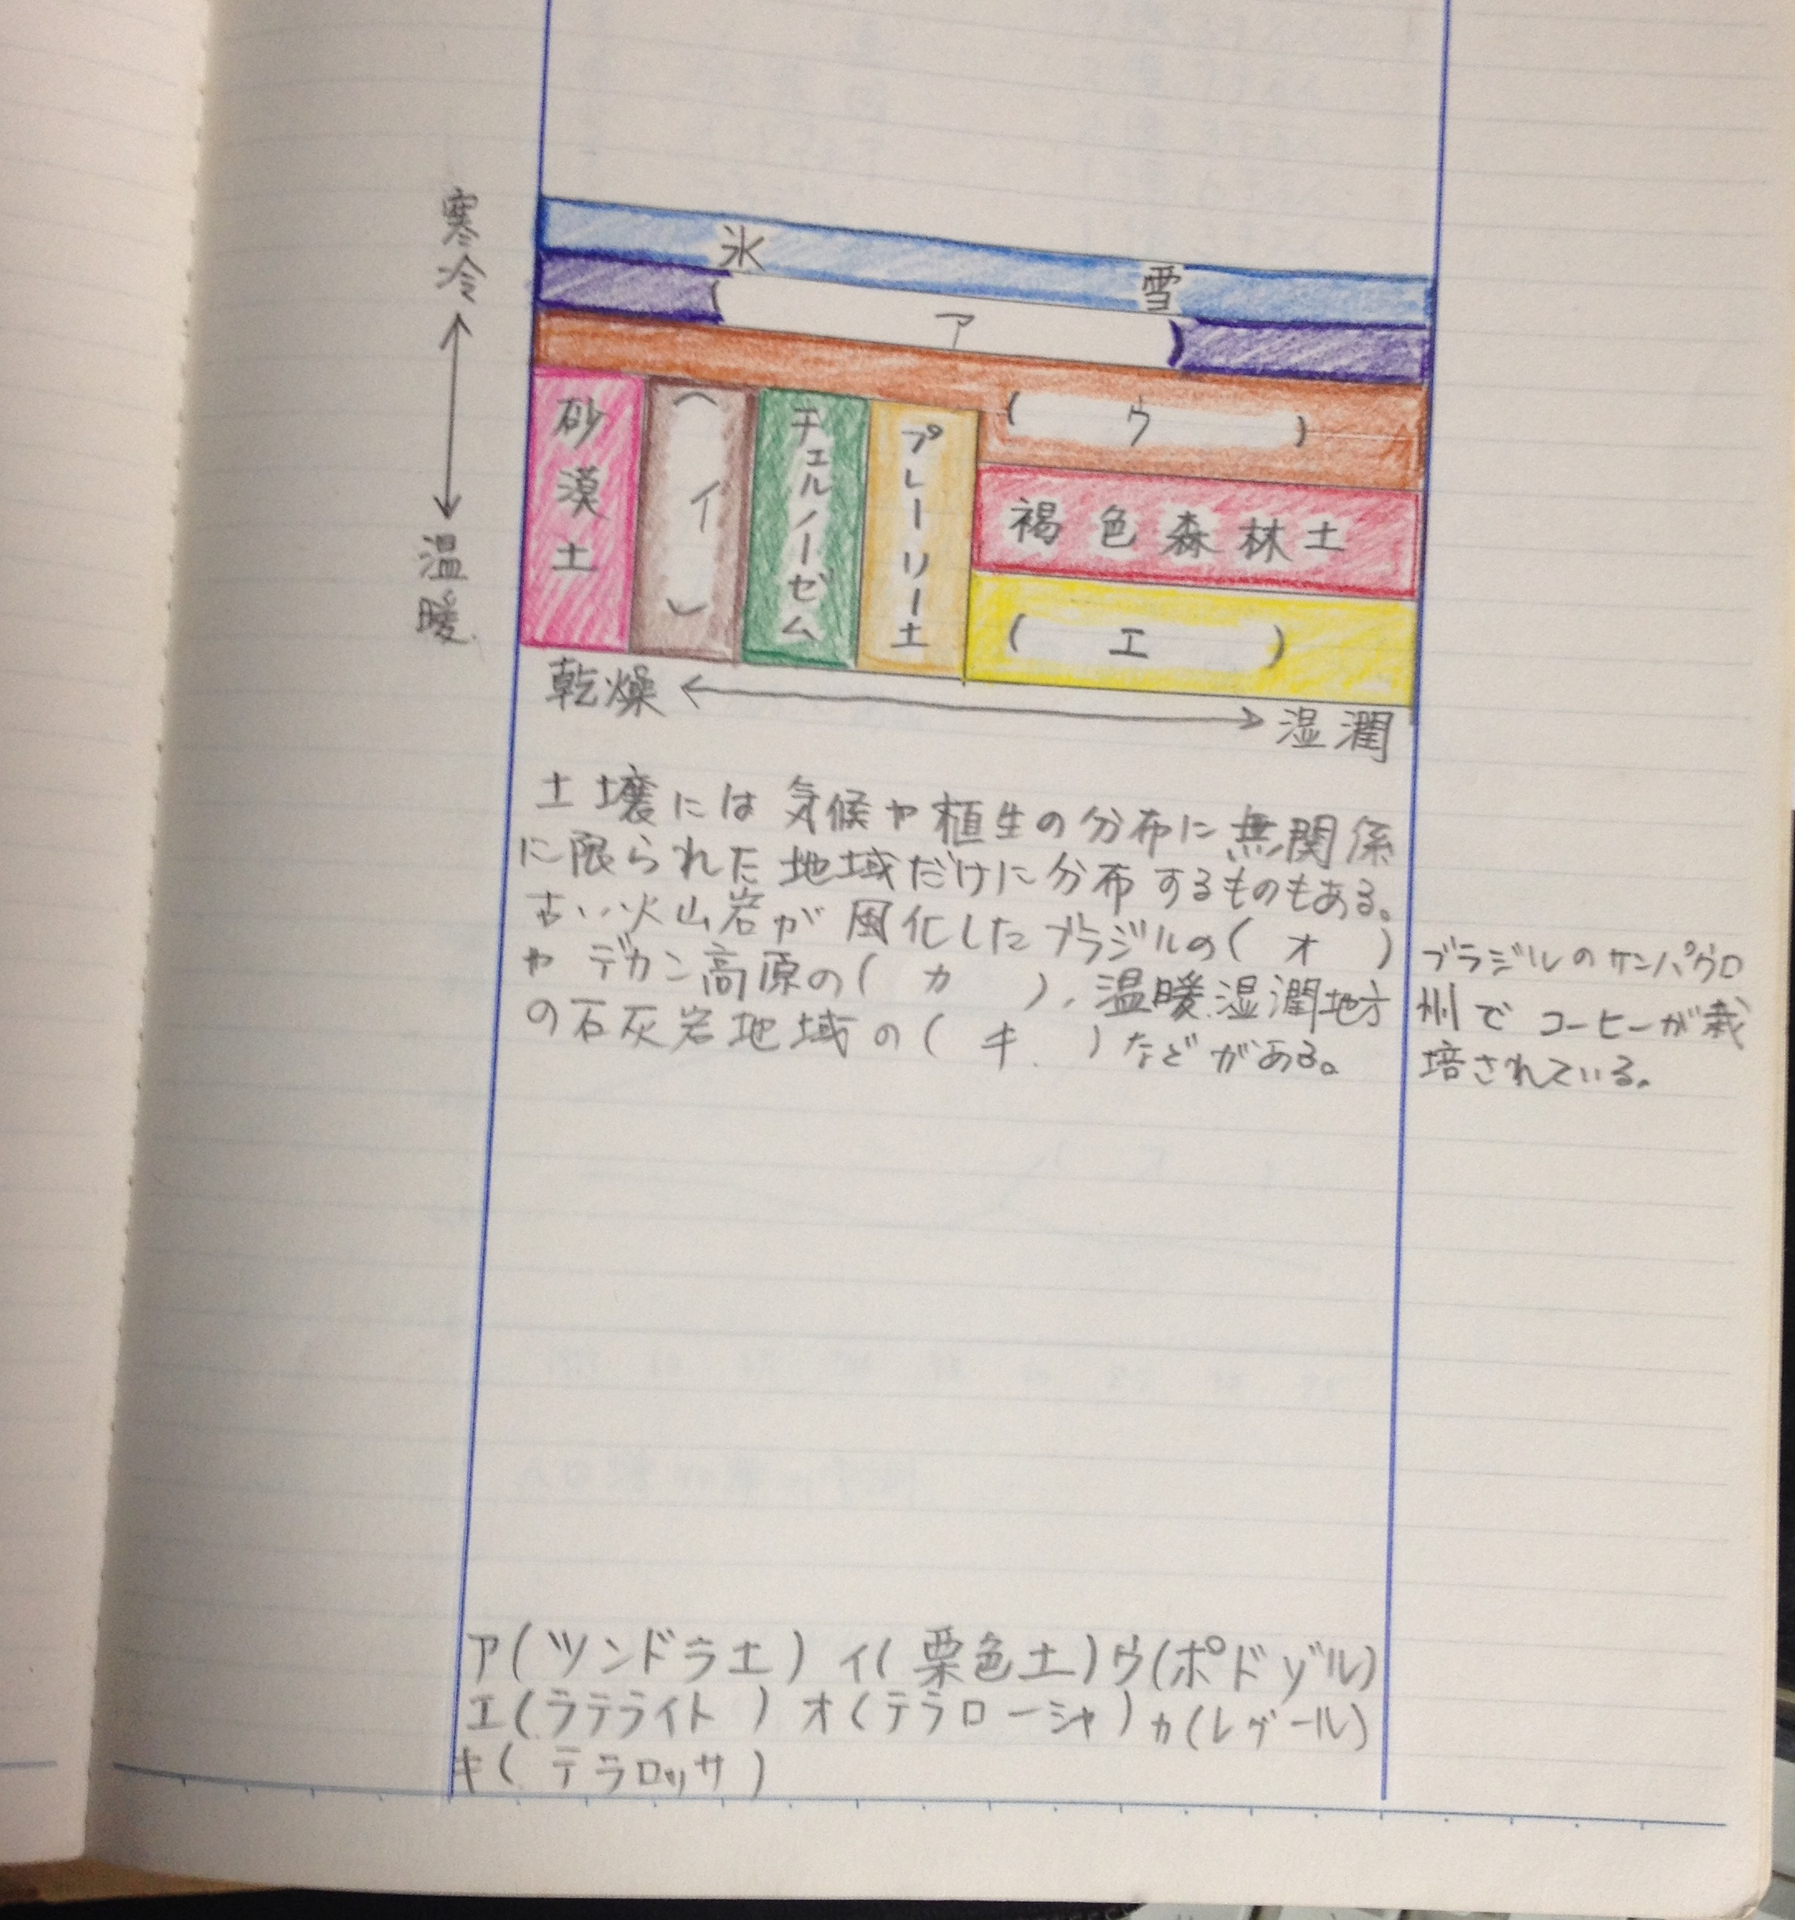 寒冷
温暖
氷 雪
( ア )
砂漠土
( イ )
チェルノーゼム
プレーリー土
( ウ )
褐色森林土
( エ )
乾燥
湿潤
土壌には気候や植生の分布に無関係
に限られた地域だけに分布するものもある。
古い火山岩が風化したブラジルの( オ )
やデカン高原の( カ )、温暖湿潤地方
の石灰岩地域の( キ )などがある。
ブラジルのサンパウロ
州でコーヒーが栽
培されている。
ア(ツンドラ土) イ(栗色土)ウ(ポドゾル)
エ(ラテライト) オ(テラローシャ)カ(レグール)
キ(テラロッサ)